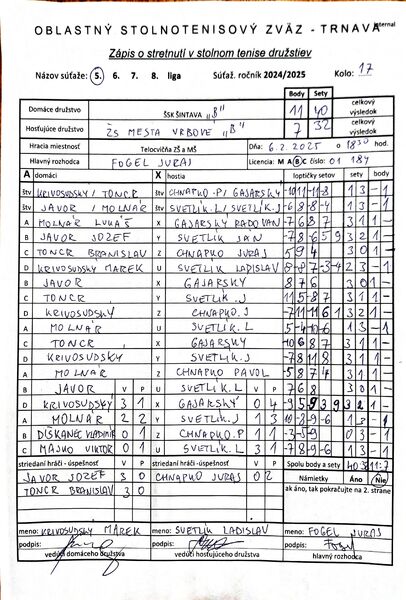 internal
OBLASTNÝ STOLNOTENISOVÝ ZVÄZ - TRNAVA
Zápis o stretnutí v stolnom tenise družstiev
Názov súťaže: 5. 6. 7. 8. liga Súťaž. ročník 2024/2025 Kolo: 17
Body Sety
Domáce družstvo ŠSK ŠINTAVA "B" 11 40 celkový výsledok
Hosťujúce družstvo ZŠ MESTA VRBOVÉ "B" 7 32 celkový výsledok
Hracia miestnosť Telocvičňa ZŠ a MŠ Dňa: 6.2.2025 o 18:30 hod.
Hlavný rozhodca FOGEL JURAJ Licencia: M A B C číslo: 01 184
A domáci X hostia loptičky setov sety body
štv KRIVOSUDSKÝ / TONCR štv CHNAPKO.P / GAJARSKY 1 3 - 1
štv JAVOR / MOLNÁR štv SVETLÍK.L / SVETLÍK.J 1 3 - 1
A MOLNÁR LUKÁŠ X GAJARSKÝ RADOVAN -7 6 8 7 3 1 1 -
B JAVOR JOZEF Y SVETLÍK JAN -7 8 -6 5 9 3 2 1 -
C TONCR BRANISLAV Z CHNAPKO JURAJ 5 9 4 3 0 1 -
D KRIVOSUDSKÝ MAREK U SVETLÍK LADISLAV 2 3 - 1
B JAVOR X GAJARSKY 8 7 6 3 0 1 -
C TONCR Y SVETLÍK.J 3 1 1 -
D KRIVOSUDSKÝ Z CHNAPKO.J 3 2 1 -
A MOLNÁR U SVETLÍK.L 1 3 - 1
C TONCR X GAJARSKY -10 6 8 7 3 1 1 -
D KRIVOSUDSKÝ Y SVETLÍK.J 3 1 1 -
A MOLNÁR Z CHNAPKO PAVOL 3 1 1 -
B JAVOR V P U SVETLÍK.L V P 7 6 8 3 0 1 -
D KRIVOSUDSKÝ 3 1 X GAJARSKÝ 0 4 3 2 1 -
A MOLNÁR 2 2 Y SVETLÍK.J 1 3 1 3 - 1
B DIŠKANEC VLADIMÍR 0 1 Z CHNAPKO.P 1 1 0 3 - 1
C MAJKO VIKTOR 0 1 U SVETLÍK.L 3 1 -7 8 -9 -6 1 3 - 1
striedaní hráči - úspešnosť striedaní hráči - úspešnosť Spolu body a sety 40:32 11:7
JAVOR JOZEF 3 0 CHNAPKO JURAJ 0 2 Námietky Áno Nie
TONCR BRANISLAV 3 0 ak áno, tak pokračujte na 2. strane
meno: KRIVOSUDSKÝ MAREK meno: SVETLÍK LADISLAV meno: FOGEL JURAJ
podpis: podpis: podpis:
vedúci domáceho družstva vedúci hosťujúceho družstva hlavný rozhodca